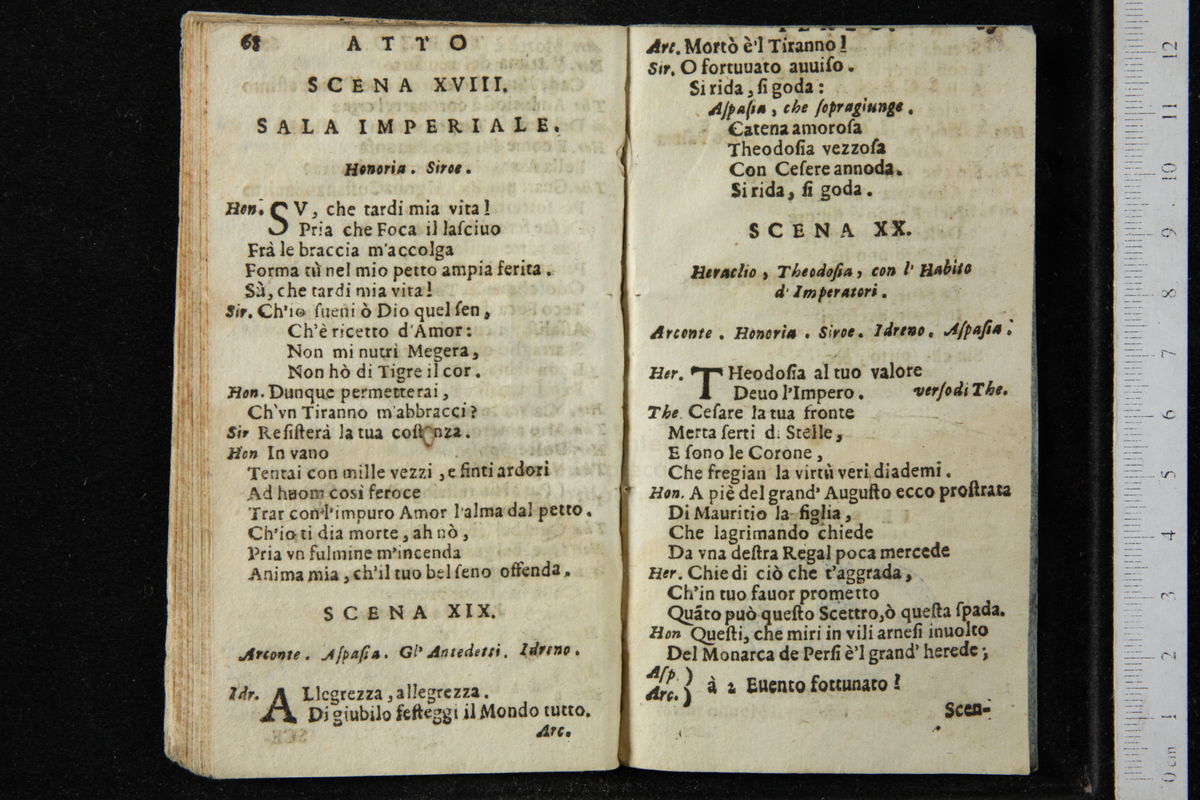 68 ATTO
SCENA XVIII.
SALA IMPERIALE.
Honoria. Siroe.
Hon. SV, che tardi mia vita!
Pria che Foca il laſciuo
Frà le braccia m'accolga
Forma tù nel mio petto ampia ferita.
Sù, che tardi mia vita!
Sir. Ch'io ſueni ò Dio quel ſen,
Ch'è ricetto d'Amor:
Non mi nutrì Megera,
Non hò di Tigre il cor.
Hon. Dunque permetterai,
Ch'vn Tiranno m'abbracci?
Sir Reſiſterà la tua coſt nza.
Hon In vano
Tentai con mille vezzi, e finti ardori
Ad huom così feroce
Trar con l'impuro Amor l'alma dal petto.
Ch'io ti dia morte, ah nò,
Pria vn fulmine m'incenda
Anima mia, ch'il tuo bel ſeno offenda.
SCENA XIX.
Arconte. Aſpaſia. Gl' Antedetti. Idreno.
Idr. ALlegrezza, allegrezza.
Di giubilo feſteggi il Mondo tutto.
Arc.
Arc. Mortò è'l Tiranno!
Sir. O fortuuato auuiſo.
Si rida, ſi goda:
Aſpaſia, che ſopragiunge.
Catena amoroſa
Theodoſia vezzoſa
Con Ceſere annoda.
Si rida, ſi goda.
SCENA XX.
Heraclio, Theodoſia, con l' Habito
d' Imperatori.
Arconte. Honoria. Siroe. Idreno. Aſpaſia.
Her. THeodoſia al tuo valore
Deuo l'Impero. verſo di The.
The Ceſare la tua fronte
Merta ſerti di Stelle,
E ſono le Corone,
Che fregian la virtù veri diademi.
Hon. A piè del grand' Auguſto ecco proſtrata
Di Mauritio la figlia,
Che lagrimando chiede
Da vna deſtra Regal poca mercede
Her. Chiedi ciò che t'aggrada,
Ch'in tuo fauor prometto
Quãto può queſto Scettro, ò queſta ſpada.
Hon Queſti, che miri in vili arneſi inuolto
Del Monarca de Perſi è'l grand' herede;
Aſp. )
Arc. ) à 2 Euento fortunato!
Scen-